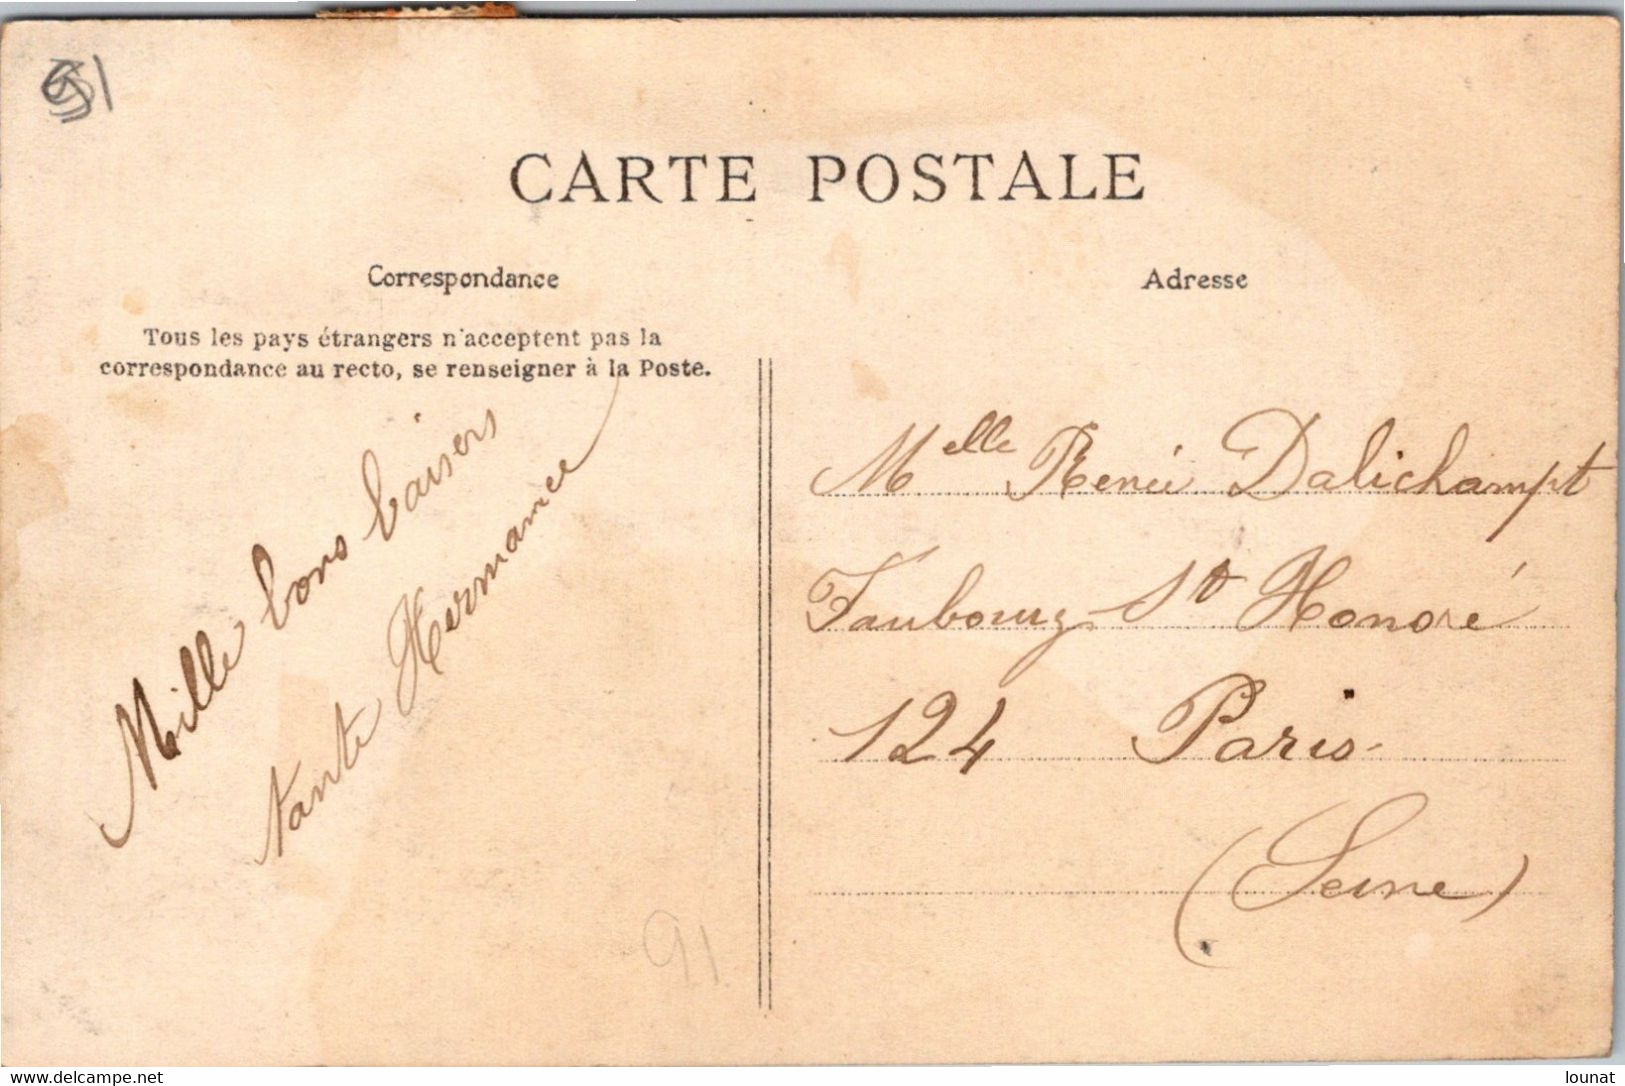 91
CARTE POSTALE
Correspondance
Adresse
Tous les pays étrangers n'acceptent pas la
correspondance au recto, se renseigner à la Poste.
Mille bons baisers
tante Hermance
Melle Renée Dalichampt
Faubourg St Honoré
124 Paris
(Seine)
91
www.delcampe.net
lounat